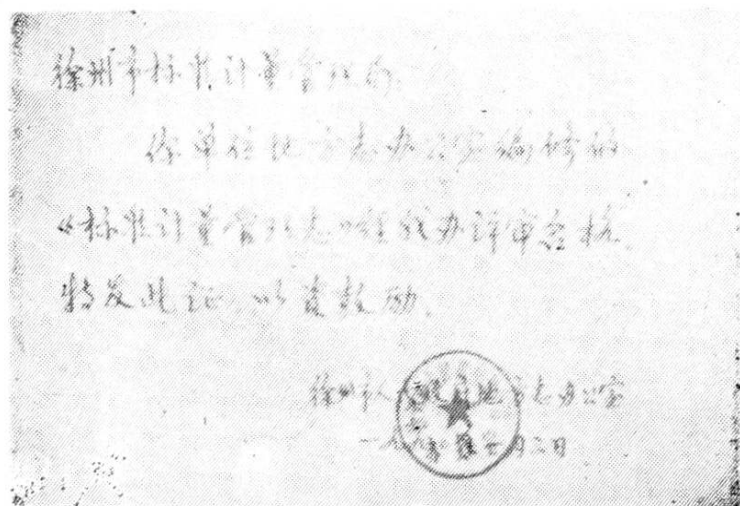 徐州市标准计量管理局:
你单位地方志办公室编修的
《标准计量管理志》经我办评审合格,
特发此证,以资鼓励。
徐州市人民政府地方志办公室
一九八 年 月二日